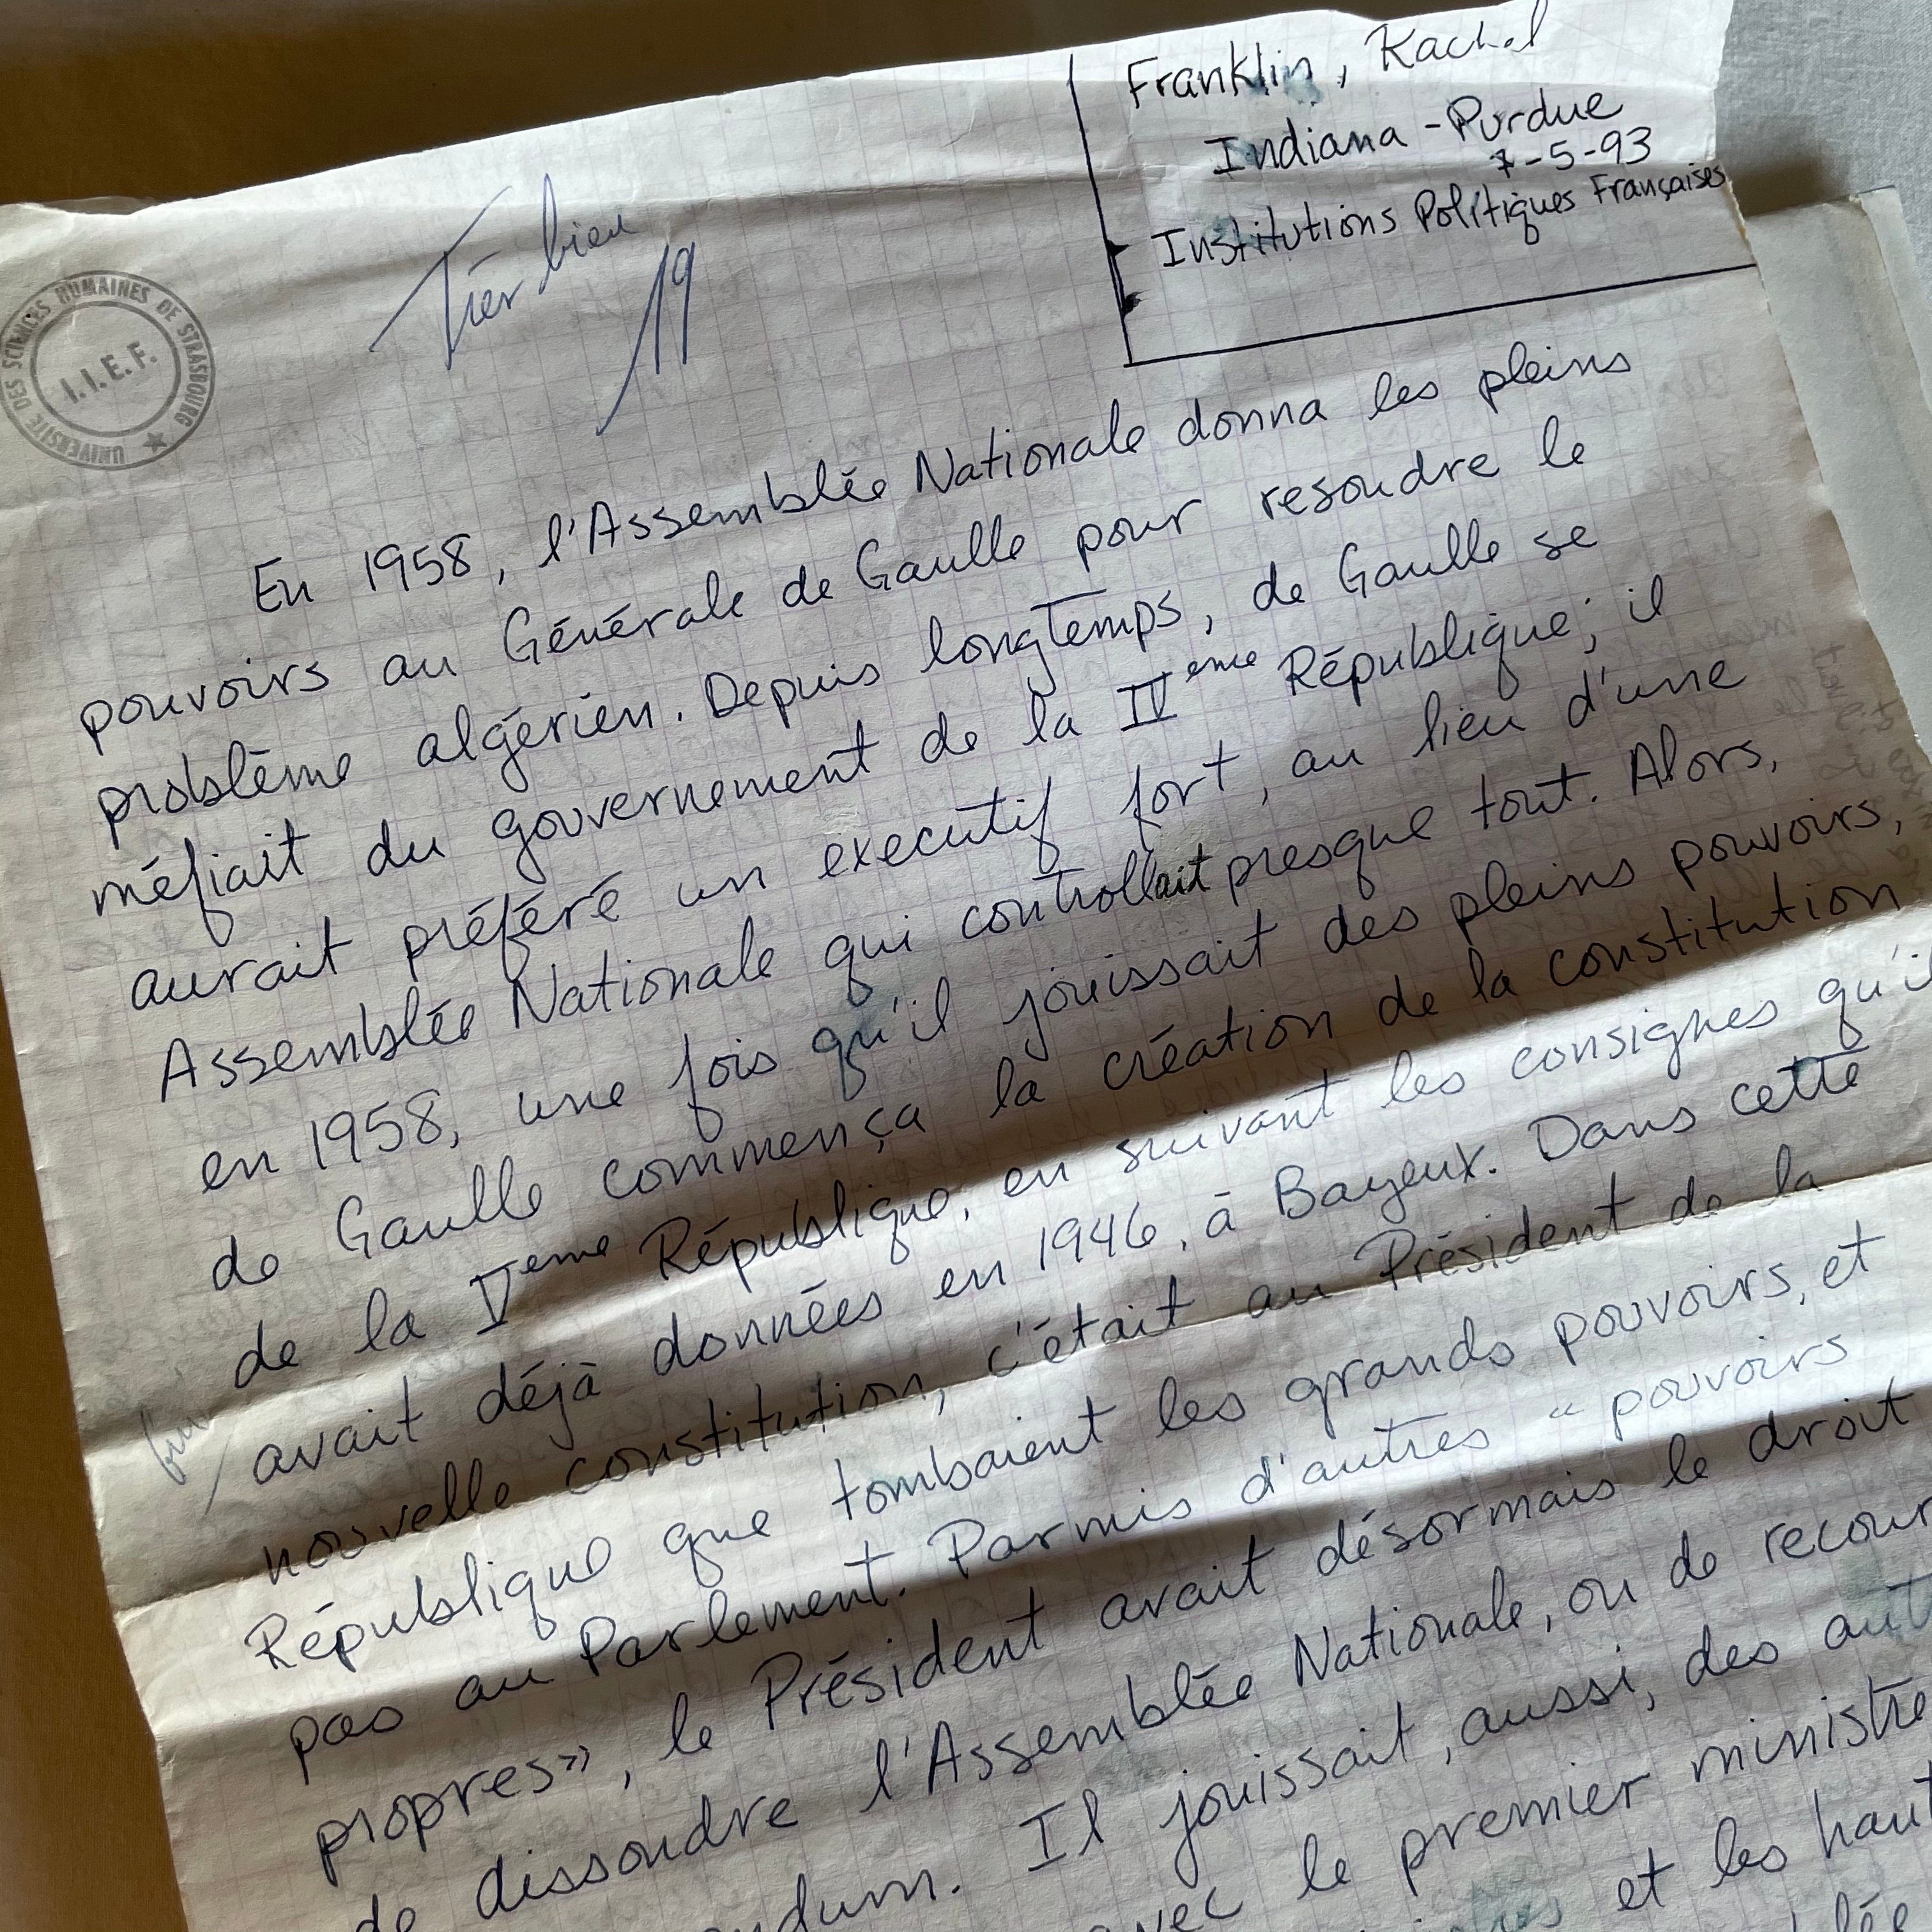 Franklin, Rachel
Indiana - Purdue
7-5-93
Institutions Politiques Françaises
UNIVERSITE DES SCIENCES HUMAINES DE STRASBOURG
I.I.E.F.
Très bien
19
En 1958, l'Assemblée Nationale donna les pleins
pouvoirs au Générale de Gaulle pour resoudre le
problème algérien. Depuis longtemps, de Gaulle se
méfiait du gouvernement de la IVeme République; il
aurait préféré un executif fort, au lieu d'une
Assemblée Nationale qui controllait presque tout. Alors,
en 1958, une fois qu'il jouissait des pleins pouvoirs,
de Gaulle commença la création de la constitution
de la Veme République, en suivant les consignes qu'il
avait déjà données en 1946, à Bayeux. Dans cette
nouvelle constitution, c'était au Président de la
République que tombaient les grands pouvoirs, et
pas au Parlement. Parmis d'autres "pouvoirs
propres», le Président avait désormais le droit
de dissoudre l'Assemblée Nationale, ou de recour
Il jouissait, aussi, des aut
avec le premier ministre
et les haut